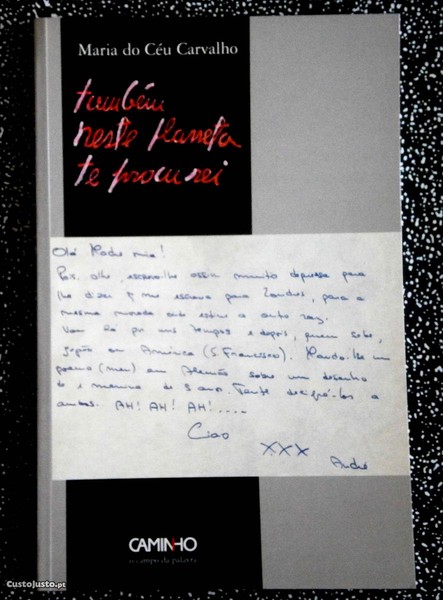 Maria do Céu Carvalho
também
neste planeta
te procurei
Olá Madre mia!
Pois olhe, escrevo-lhe assim muito depressa para
lhe dizer q me escreva para Londres, para a
mesma morada onde estive a outra vez.
Vou lá por uns tempos e depois, quem sabe,
Japão ou América (S. Francisco). Mando-lhe um
poema (meu) em Alemão sobre um desenho
de 1 menina de 3 anos. Tente decifrá-los a
ambos. AH! AH! AH!....
Ciao
XXX
André
CAMINHO
o campo da palavra
CustoJusto.pt